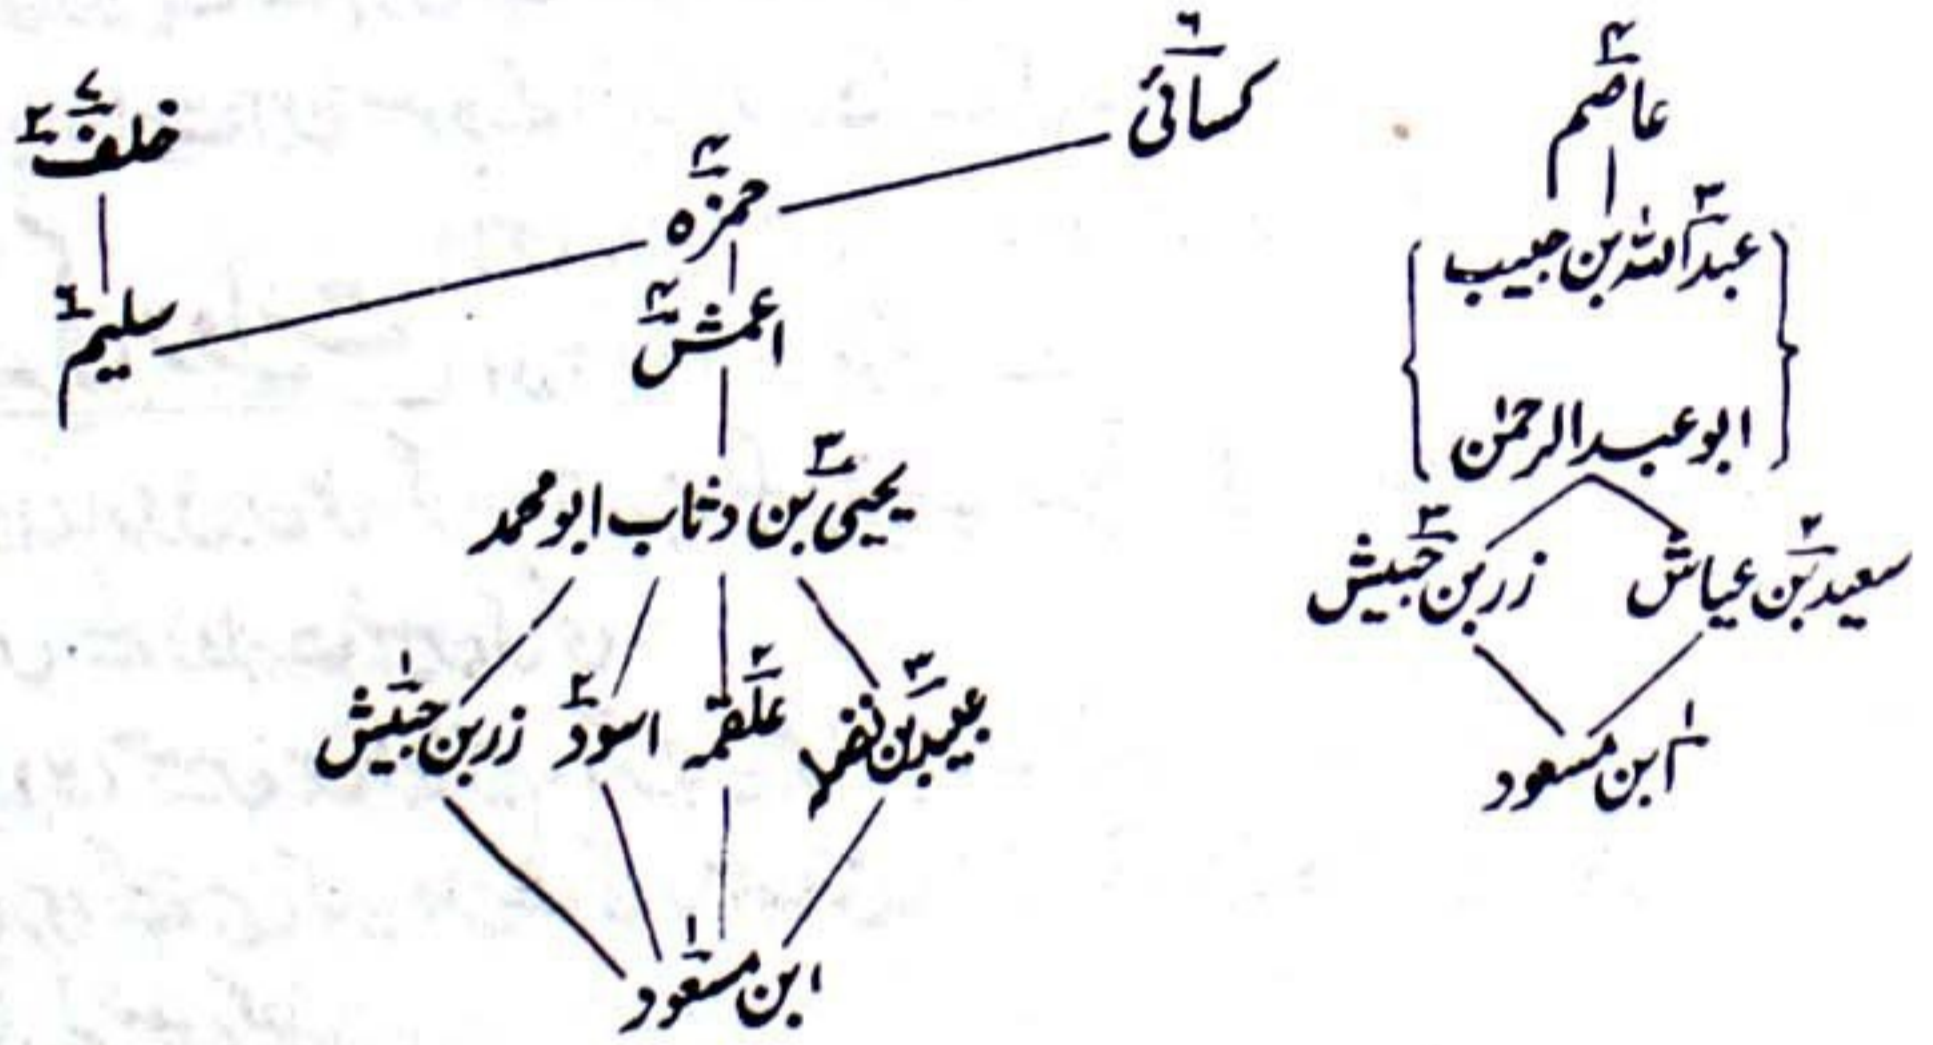 عاصم ۴
عبداللہ بن حبیب ۳
ابوعبدالرحمٰن
سعید بن عیاش ۲ زر بن حبیش ۳
ابن مسعود ۱
کسائی ۶
حمزہ ۴
خلف ۷ ۲
سلیم ۶
اعمش ۴
یحییٰ بن وثاب ابومحمد ۳
عبید بن ۳ علقمہ ۲ اسود ۲ زر بن حبیش ۱
ابن مسعود ۱